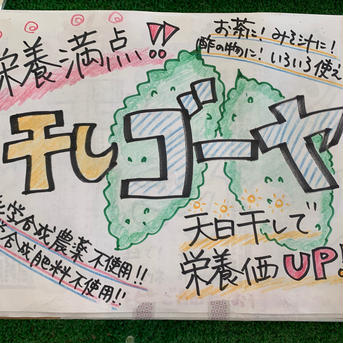 栄養満点!!
お茶に!みそ汁に!
酢の物に!いろいろ使え
干しゴーヤ
化学合成農薬不使用!!
合成肥料不使用!!
天日干しで
栄養価UP!